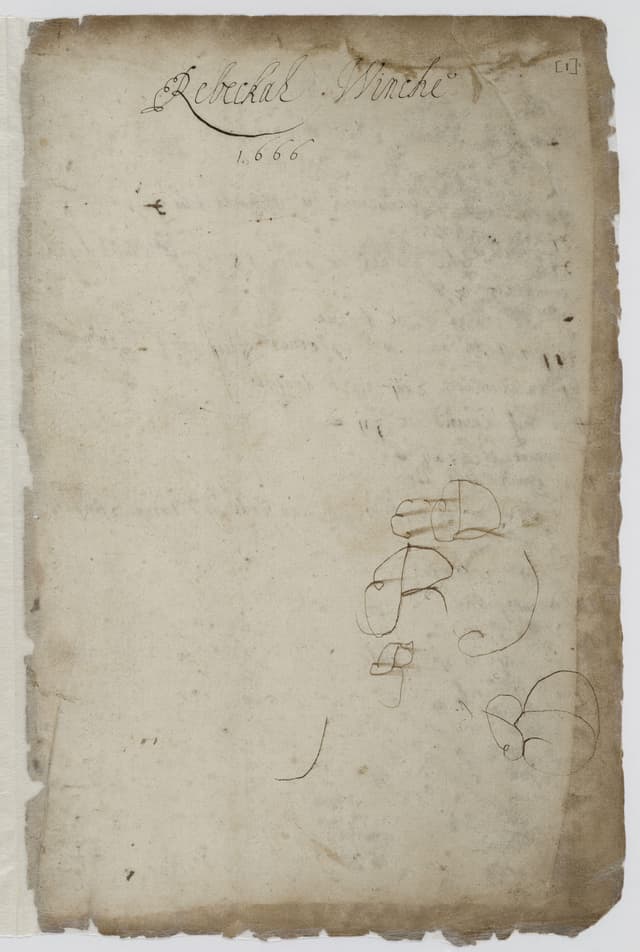 [1]
Rebeckah Winche
1666